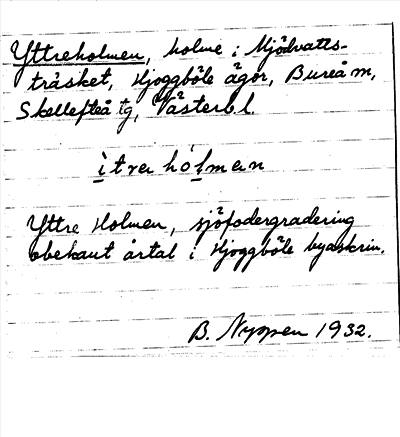 Yttreholmen, holme i Mjödvatts-
träsket, Hjoggböle ägor, Bureå m,
Skellefteå tg, Västerb l.
i̱trer hó̱lmen
Yttre Holmen, sjöfodergradering
obekant årtal i Hjoggböle byaskrin.
B. Nyppen 1932.